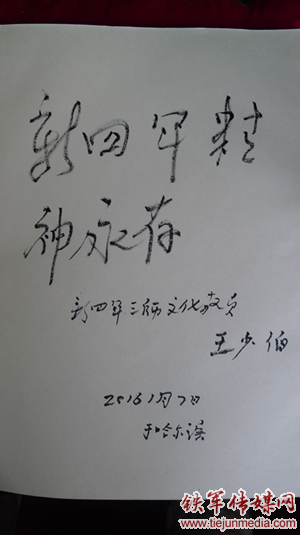 新四军精
神永存
新四军三师文化教员
王少伯
2016 1月7日
于哈尔滨
铁军传媒网
www.tiejunmedia.com